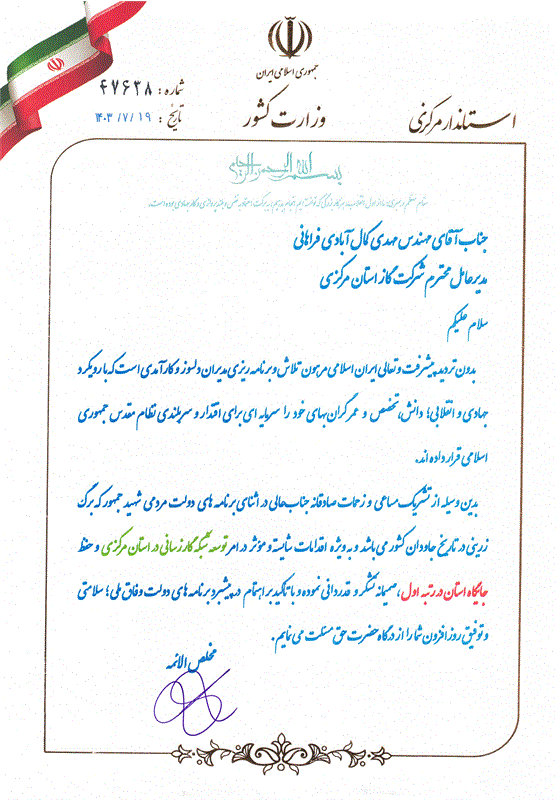 جمهوری اسلامی ایران
وزارت کشور
استاندار مرکزی
شماره : ۴۷۶۳۸
تاریخ : ۱۴۰۳/۷/۱۹
بسم الله الرحمن الرحیم
مقام معظم رهبری:
جناب آقای مهندس مهدی کمال آبادی فراهانی
مدیرعامل محترم شرکت گاز استان مرکزی
سلام علیکم
بدون تردید پیشرفت و تعالی ایران اسلامی مرهون تلاش و برنامه ریزی مدیران دلسوز و کارآمدی است که با رویکرد
جهادی و انقلابی؛ دانش، تخصص و عمر گران‌بهای خود را سرمایه ای برای اقتدار و سربلندی نظام مقدس جمهوری
اسلامی قرار داده اند.
بدین وسیله از تشریک مساعی و زحمات صادقانه جناب‌عالی در اثنای برنامه های دولت مردمی شهید جمهور که برگ
زرینی در تاریخ جاودان کشور می باشد و به ویژه اقدامات شایسته و مؤثر در امر توسعه شبکه گازرسانی در استان مرکزی و حفظ
جایگاه استان در رتبه اول، صمیمانه تشکر و قدردانی نموده و با تاکید بر اهتمام در پیشبرد برنامه های دولت وفاق ملی؛ سلامتی
و توفیق روز افزون شما را از درگاه حضرت حق مسئلت می نمایم.
مخلص الائمه